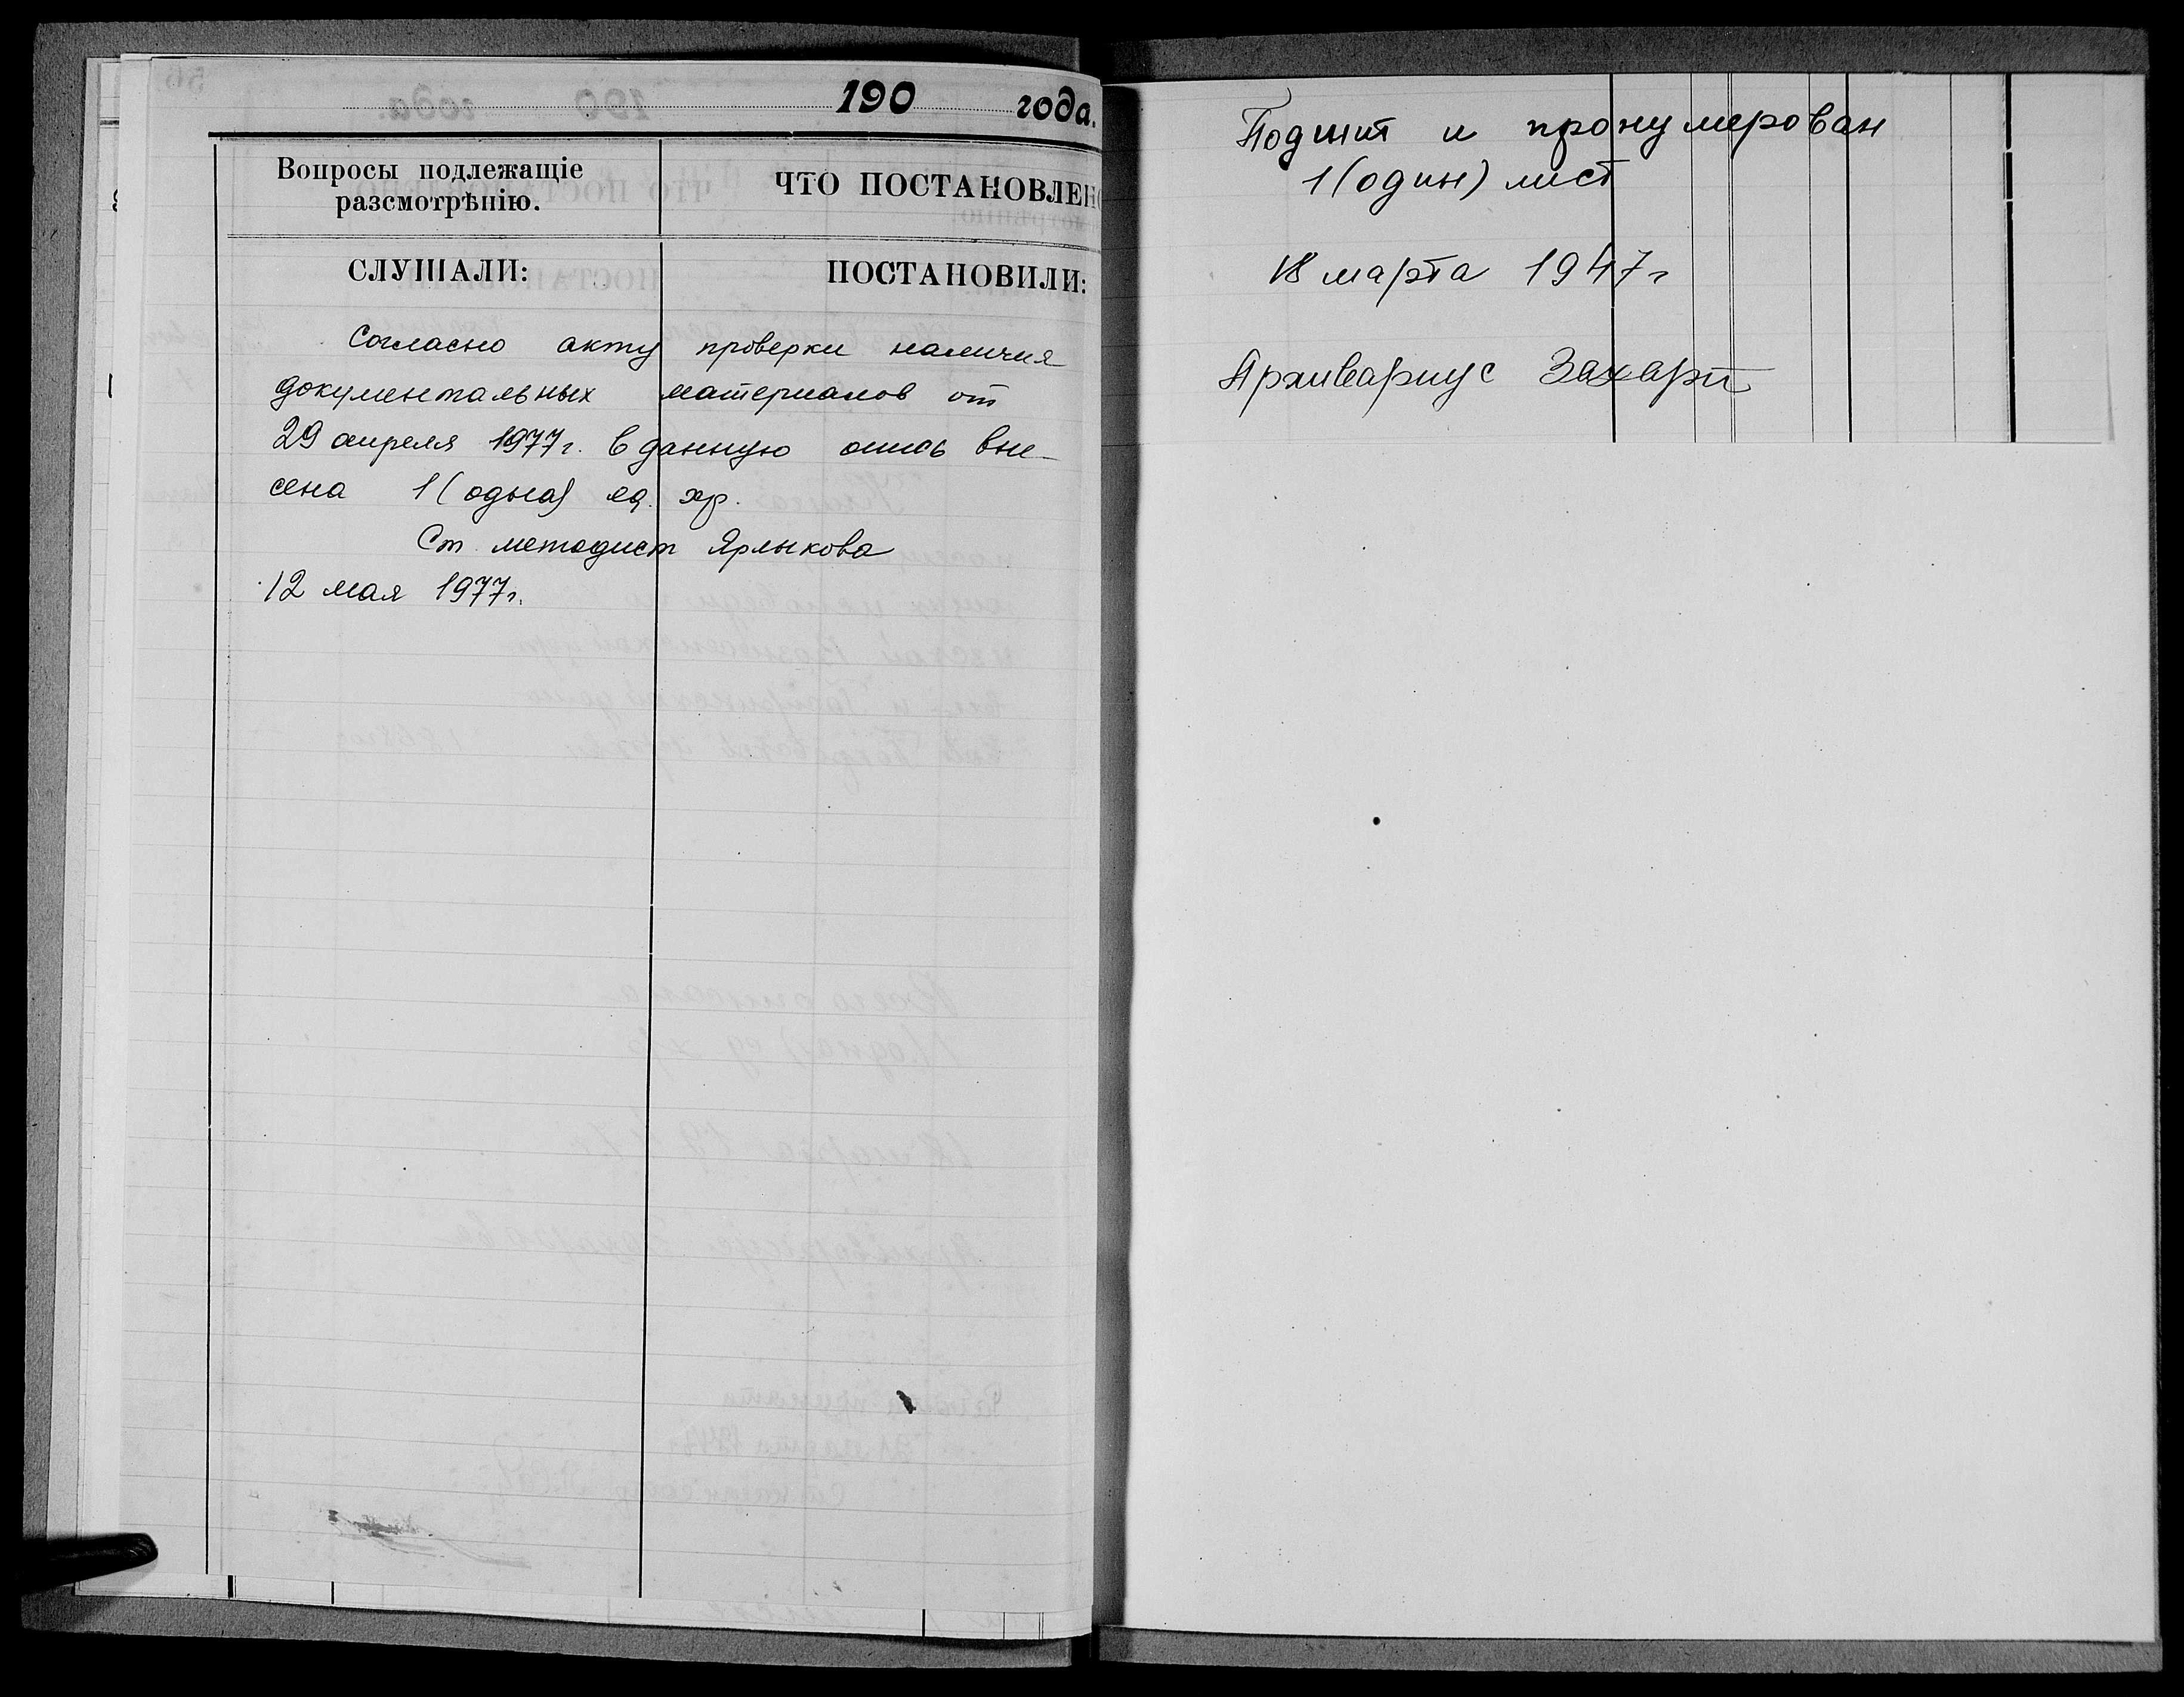 190 года.
Вопросы подлежащіе
разсмотрѣнію.
ЧТО ПОСТАНОВЛЕНО
СЛУШАЛИ:
ПОСТАНОВИЛИ:
Согласно акту проверки наличия
документальных материалов от
29 апреля 1977г. в данную опись вне-
сена 1 (одна) ед. хр.
Ст. методист Ярлыкова
12 мая 1977г.
Подшит и пронумерован
1 (один) лист
18 марта 1947г
Архивариус Захар